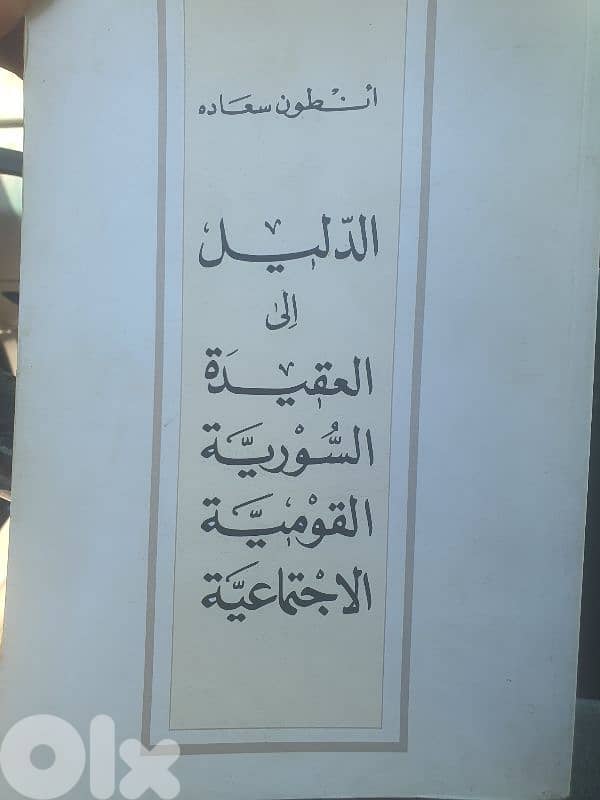 أنطون سعاده
الدّليل
إلى
العقيدَة
السُّوْريَّة
القوْميَّة
الاجْتماعيَّة
OLX